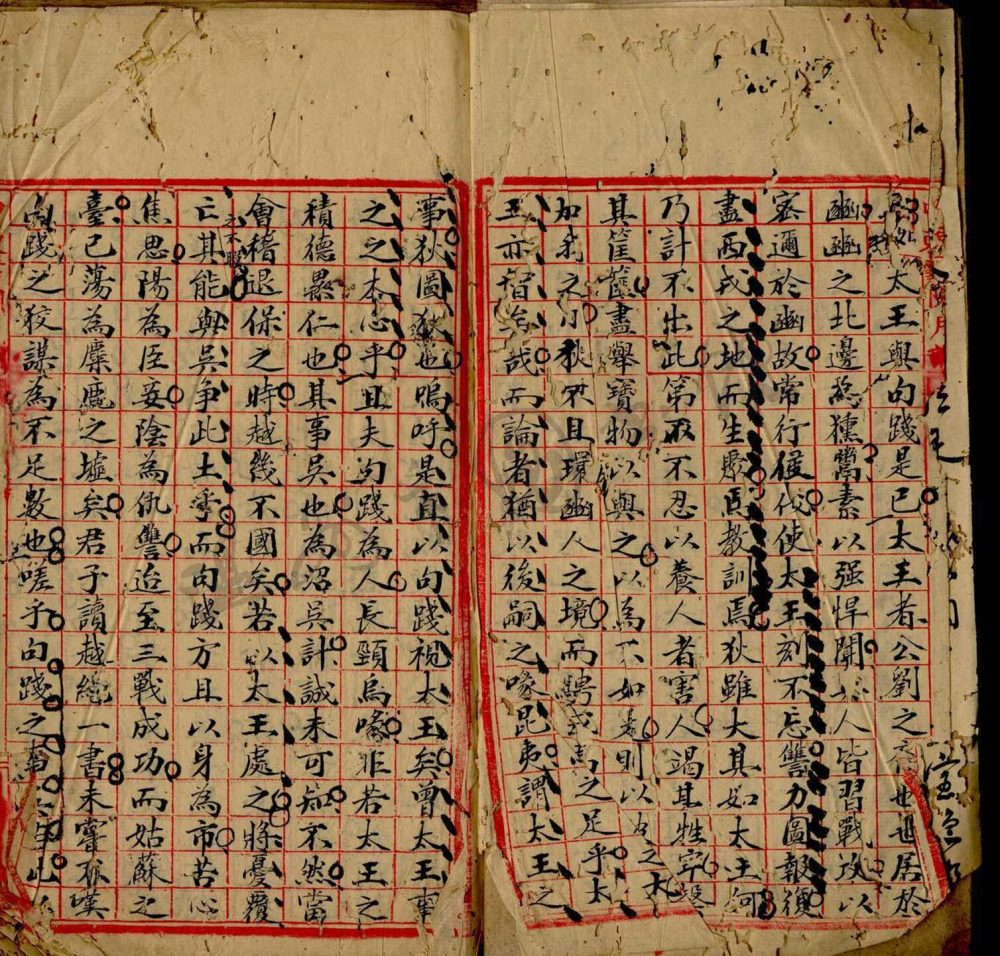 太王與句踐是已太王者公劉之裔也世居於
豳豳之北邊為獯鬻素以强悍聞其人皆習戰攻以
密邇於豳故常行侵伐使太王刻不忘讐力圖報復
盡西戎之地而生聚焉教訓焉狄雖大其如太王何
乃計不出此第以不忍以養人者害人竭其牲牢罄
其筐篚盡舉寶物以與之以為不如是則以
加我之狄不且環豳人之境而騁戎馬之足乎太
王亦智矣哉而論者猶以後嗣之喙昆夷謂太王之
事狄圖狄也嗚呼是直以句踐視太王矣曾太王事
之之本心乎且夫句踐為人長頸烏喙非若太王之
積德累仁也其事吳也為沼吳計誠未可知不然當
會稽退保之時越幾不國矣若以太王處之將憂覆
亡之不暇其能與吳争此土乎而句踐方且以身為市苦心
焦思陽為臣妾陰為仇讐迨至三戰成功而姑蘇之
臺已蕩為麋鹿之墟矣君子讀越絕一書未嘗不嘆
句踐之狡謀為不足數也嗟乎句踐之事